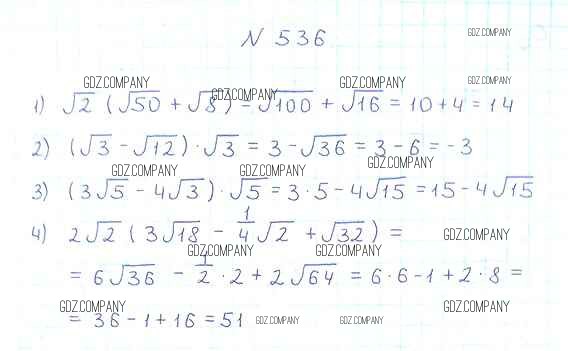 N 536
GDZ.COMPANY
GDZ.COMPANY GDZ.COMPANY GDZ.COMPANY GDZ.COMPANY
1) √2 (√50 + √8) = √100 + √16 = 10 + 4 = 14
2) (√3 - √12) · √3 = 3 - √36 = 3 - 6 = -3
GDZ.COMPANY GDZ.COMPANY GDZ.COMPANY
3) (3√5 - 4√3) · √5 = 3 · 5 - 4√15 = 15 - 4√15
4) 2√2 (3√18 - 1/4 √2 + √32) =
GDZ.COMPANY
GDZ.COMPANY GDZ.COMPANY
= 6√36 - 1/2 · 2 + 2√64 = 6 · 6 - 1 + 2 · 8 =
GDZ.COMPANY GDZ.COMPANY
= 36 - 1 + 16 = 51
GDZ.COMPANY GDZ.COMPANY